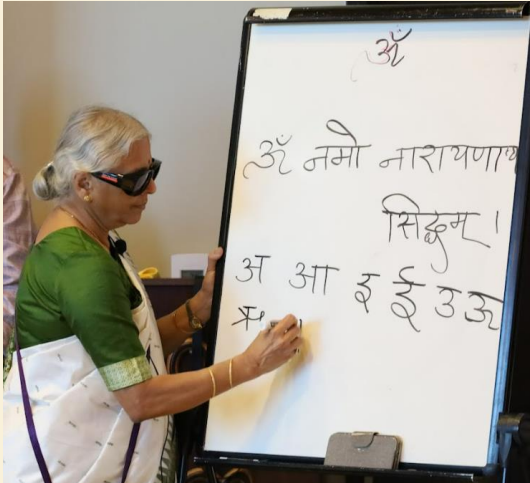 ॐ
ॐ नमो नारायणाय
सिद्धम् ।
अ आ इ ई उ ऊ
ऋ